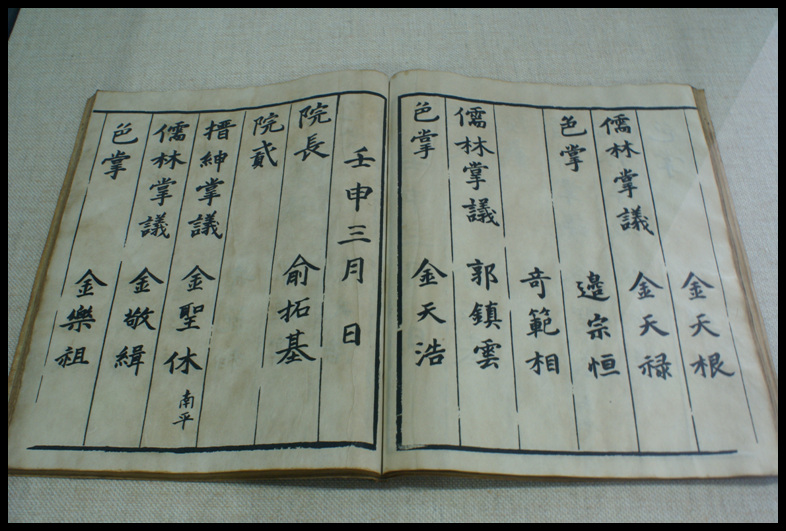 金天根
儒林掌議 金天禄
色掌 邊宗恒
奇範相
儒林掌議 郭鎮雲
色掌 金天浩
壬申三月 日
院長 俞拓基
院貳
搢紳掌議 金聖休 南平
儒林掌議 金敬緝
色掌 金樂祖